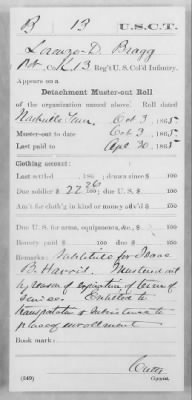 B 13 U.S.C.T.
Lorenzo D. Bragg
Co. , 13 Reg't U.S. Col'd Infantry.
Appears on a
Detachment Muster-out Roll
of the organization named above. Roll dated
Nashville Tenn Oct 3, 1865
Muster-out to date Oct 3, 1865
Last paid to Apr 30, 1865
Clothing account:
Last settled , 186 ; drawn since $ 100
Due soldier $ 22 26/100 ; due U.S. $ 100
Am't for cloth'g in kind or money adv'd $ 100
Due U.S. for arms, equipments, &c., $ 100
Bounty paid $ 100 ; due $ 100
Remarks: Substitute for Isaac
B. Harris. Mustered out
by reason of expiration of term of
Service. Entitled to
transportation & subsistence to
place of enrollment
Book mark:
(649) Copyist.